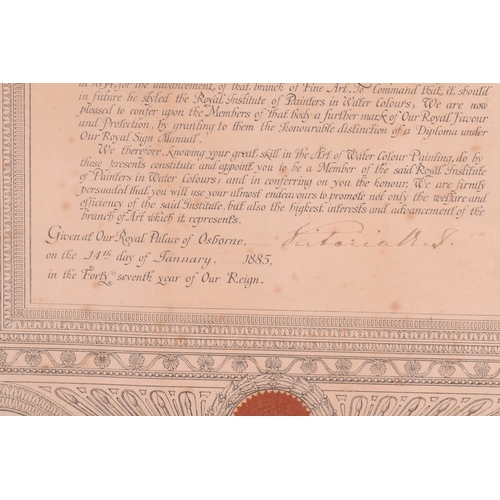 for the advancement of that branch of Fine Art, To Command that it should
in future be styled the Royal Institute of Painters in Water Colours; We are now
pleased to confer upon the Members of that body a further mark of Our Royal Favour
and Protection, by granting to them the honourable distinction of a Diploma under
Our Royal Sign Manual.
We therefore, knowing your great skill in the Art of Water Colour Painting, do by
these presents constitute and appoint you to be a Member of the said Royal Institute
of Painters in Water Colours; and in conferring on you the honour, We are firmly
persuaded that you will use your almost endeavours to promote not only the welfare and
efficiency of the said Institute, but also the highest interests and advancement of the
branch of Art which it represents.
Given at Our Royal Palace of Osborne, Victoria R.I.
on the 14th day of January, 1885,
in the Forty seventh year of Our Reign.